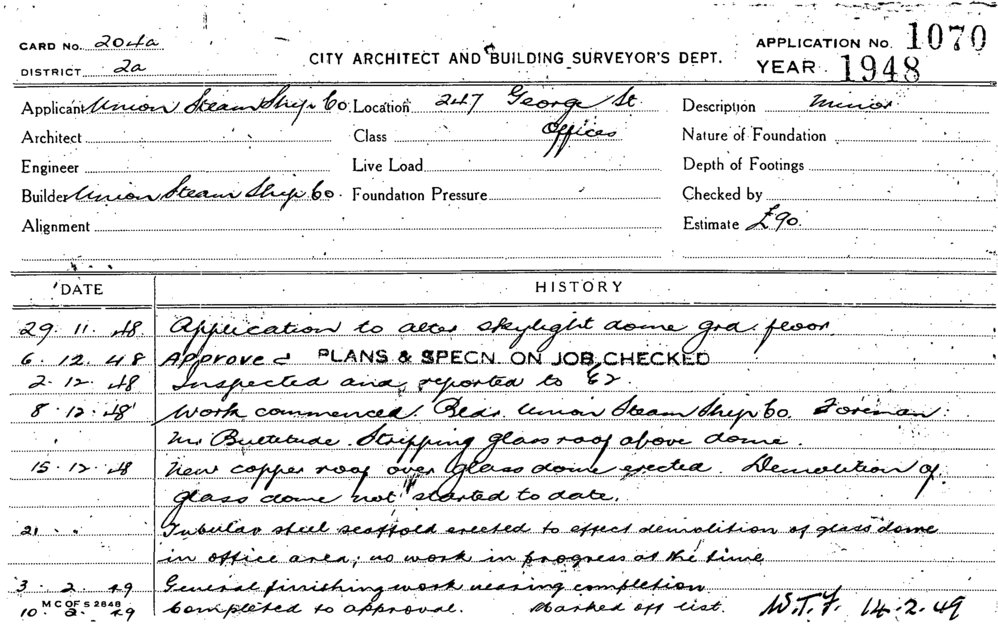 CARD No. 204a
DISTRICT 2a
CITY ARCHITECT AND BUILDING SURVEYOR'S DEPT.
APPLICATION No. 1070
YEAR 1948
Applicant Union Steam Ship Co Location 247 George St Description Minor
Architect Class Offices Nature of Foundation
Engineer Live Load Depth of Footings
Builder Union Steam Ship Co. Foundation Pressure Checked by
Alignment Estimate £90.
DATE HISTORY
29. 11. 48. Application to alter skylight dome grd. floor
6. 12. 48 Approved PLANS & SPECN. ON JOB CHECKED
2. 12. 48 Inspected and reported to
8. 12. 48 Work commenced. Bldr. Union Steam Ship Co. Foreman
Mr Bultitude. Stripping glass roof above dome.
15. 12. 48 New copper roof over glass dome erected. Demolition of
glass dome not started to date.
21 . . Tubular steel scaffold erected to effect demolition of glass dome
in office area; no work in progress at the time
3. 2. 49 General finishing work nearing completion
M C OF S 2848
10. 2. 49 Completed to approval. Marked off list. W.T.F. 14.2.49